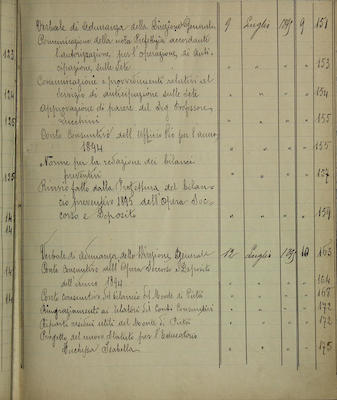 Verbale di Adunanza della Direzione Generale 9 Luglio 189 9 151
Comunicazione della nota Prefettizia accordante
123 l'autorizzazione per l'operazione di Anti-
cipazione sulle Sete " " " " 153
Comunicazione e provvedimenti relativi al
124 Servizio di anticipazione sulle Sete " " " " 154
Approvazione di parere del Sig Professore
125 Lucchini " " " " 155
Conto Consuntivo dell'Ufficio Pio per l'anno
1894 " " " " 155
Norme per la redazione dei bilanci
125 preventivi " " " " 157
Rinvio fatto dalla Prefettura del bilan-
cio preventivo 1895 dell'Opera Soc-
14 corso e Deposito " " " " 159
14
Verbale di Adunanza della Direzione Generale 12 Luglio 189 10 163
Conto consuntivo dell'Opera Soccorso e Deposito
14 dell'anno 1894 " " " " 164
14 Conto consuntivo del bilancio del Monte di Pietà " " " " 168
Ringraziamento ai relatori dei Conti Consuntivi " " " " 172
Riparto utili del Monte di Pietà " " " " 172
Progetto del nuovo Statuto per l'Educatorio
Duchessa Isabella " " " " 175